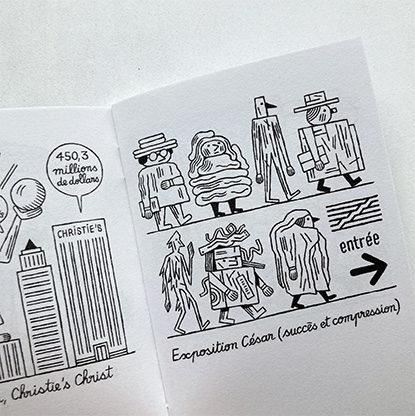 450,3
millions
de dollars
CHRISTIE'S
, Christie's Christ
entrée
Exposition César (succès et compression)